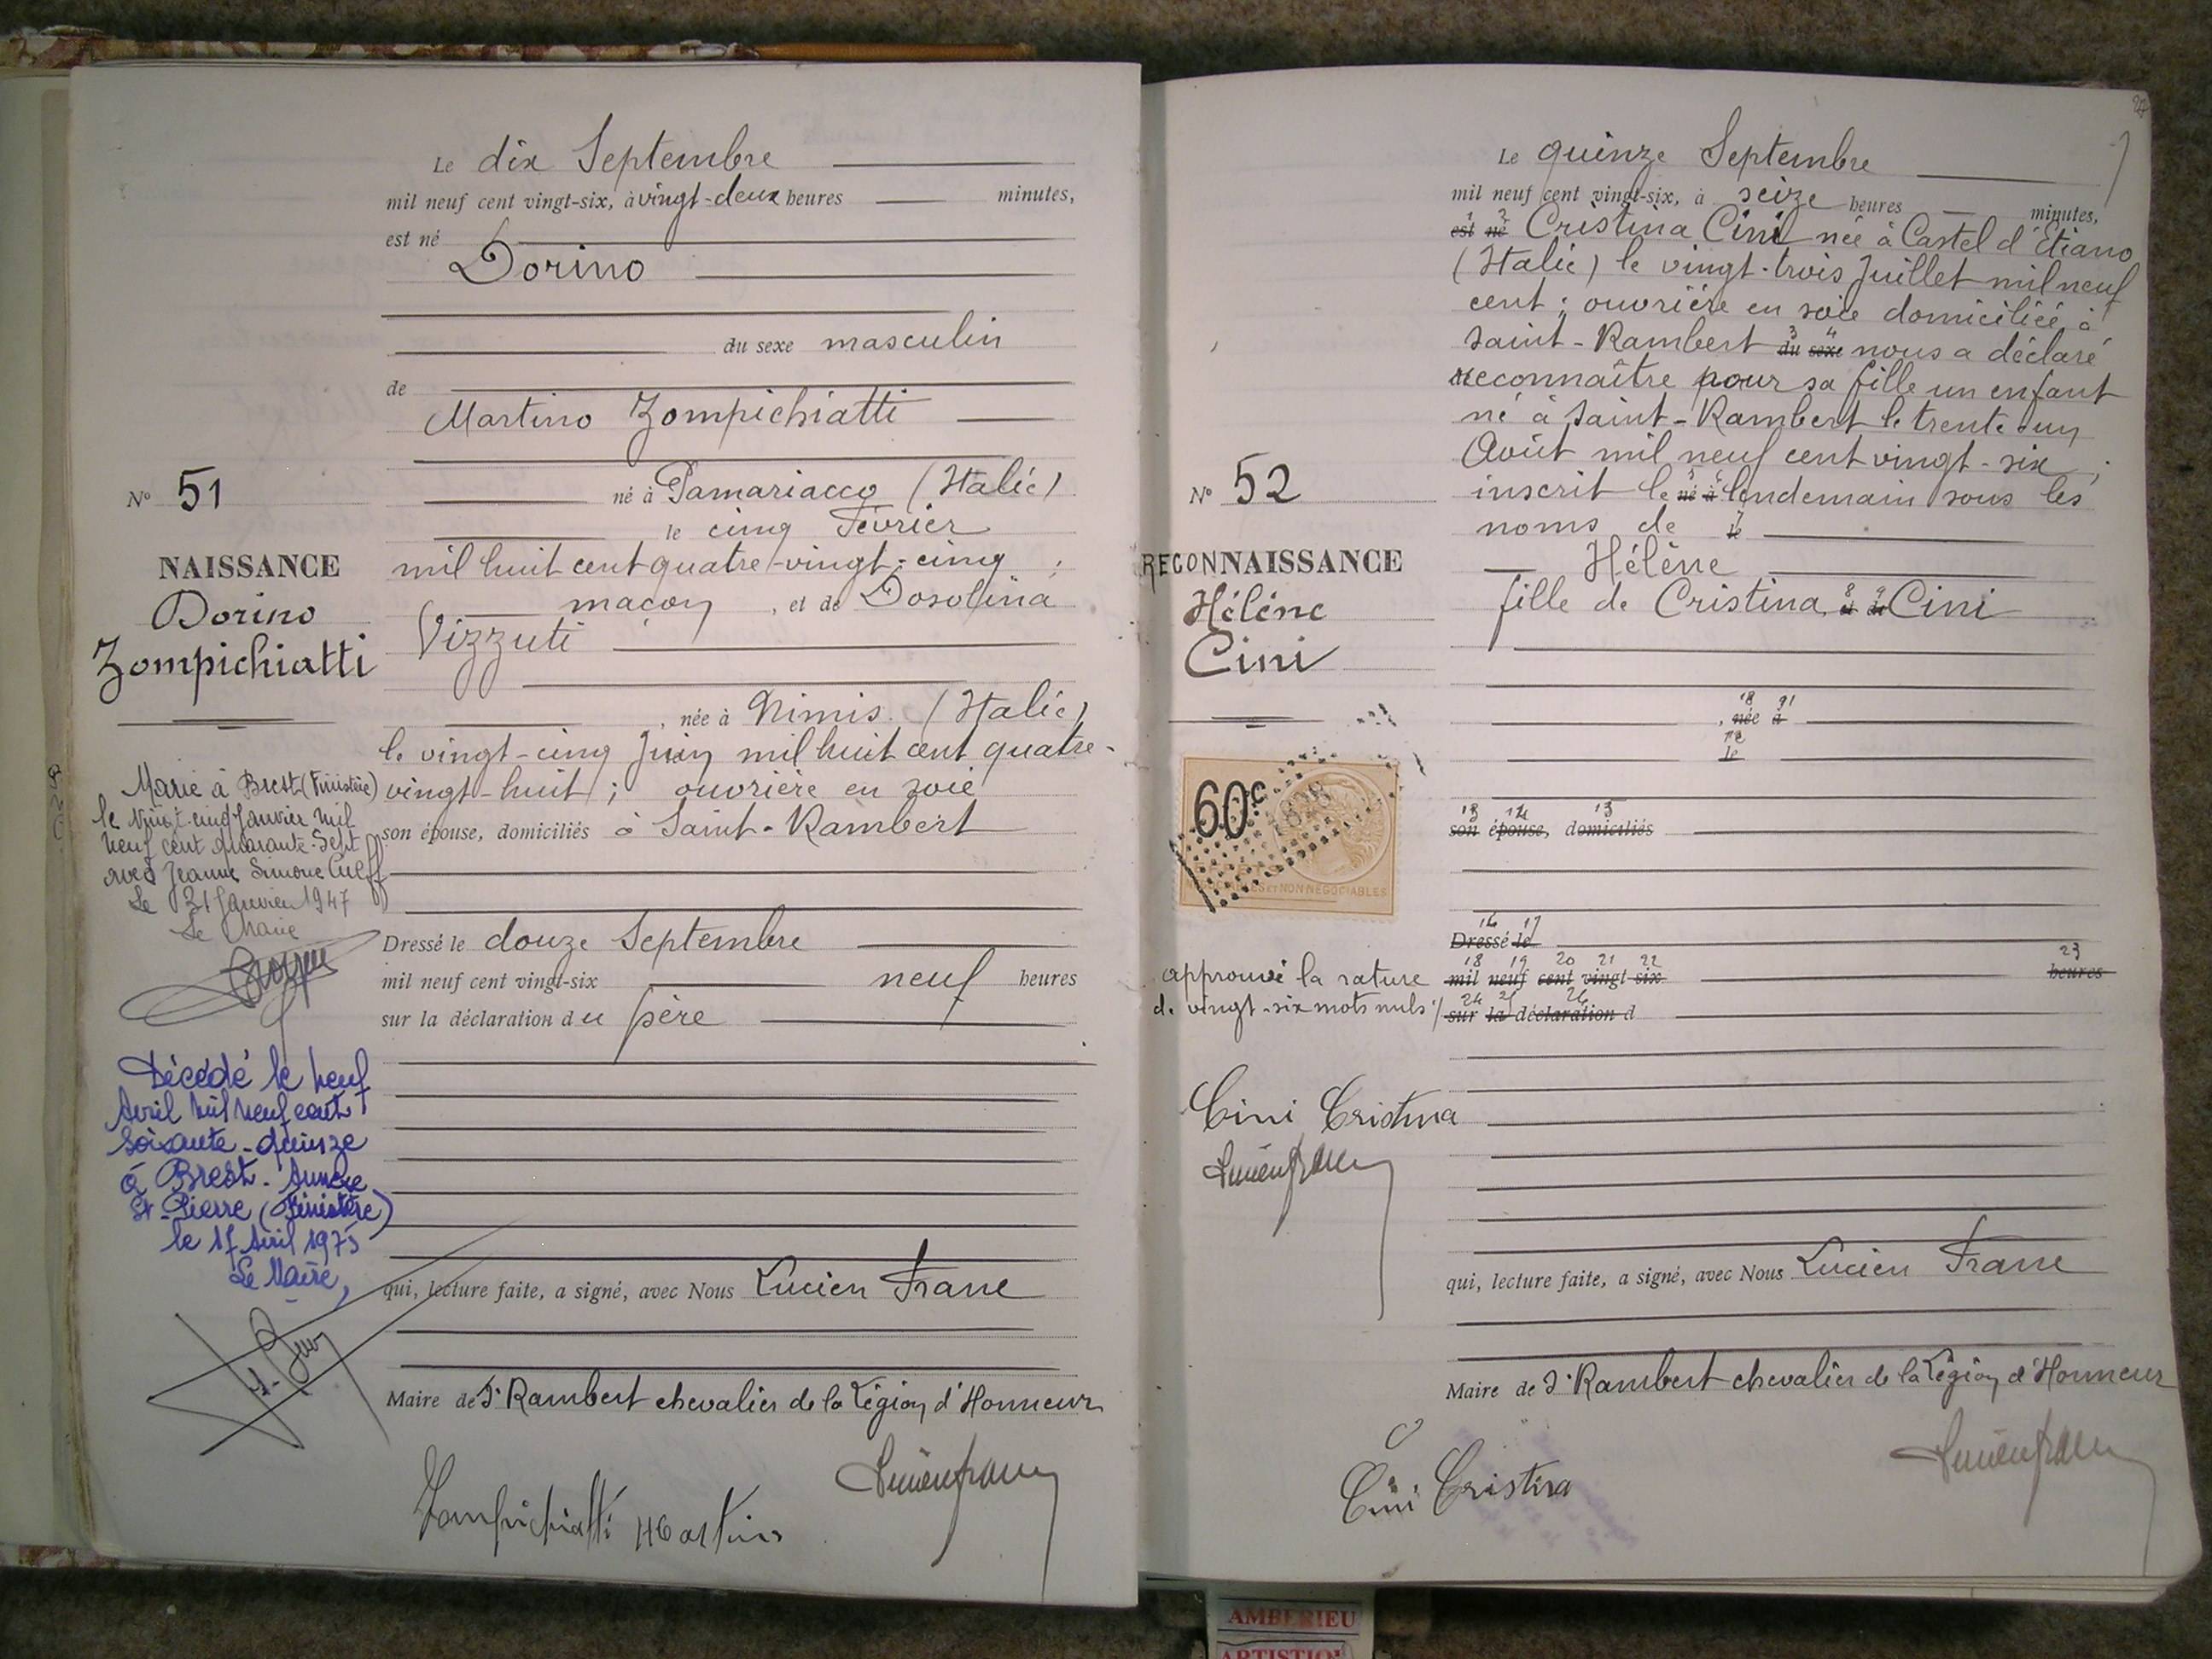 Le dix Septembre
mil neuf cent vingt-six, à vingt-deux heures minutes,
est né
Dorino
du sexe masculin
de
Martino Zompichiatti
né à Pamariacco (Italie)
le cinq Février
mil huit cent quatre-vingt-cinq ;
maçon, et de Dosolina
Vizzuti
, née à Nimis (Italie)
le vingt-cinq Juin mil huit cent quatre-
vingt-huit ; ouvrière en soie
son épouse, domiciliés à Saint-Rambert
Dressé le douze Septembre
mil neuf cent vingt-six neuf heures
sur la déclaration du père
qui, lecture faite, a signé, avec Nous Lucien Franc
Maire de St Rambert chevalier de la Légion d'Honneur
Zompichiatti Martino
N° 51
NAISSANCE
Dorino
Zompichiatti
Marié à Brest (Finistère)
le vingt-cinq Janvier mil
neuf cent quarante-sept
avec Jeanne Simone Cueff
Le 31 Janvier 1947
Le Maire
Décédé le neuf
Avril mil neuf cent
soixante-quinze
à Brest. Annexe
St-Pierre (Finistère)
le 17 Avril 1975
Le Maire,
Le quinze Septembre
mil neuf cent vingt-six, à seize heures minutes,
1 2
est né Cristina Cini née à Castel d'Etiano
(Italie) le vingt-trois Juillet mil neuf
cent ; ouvrière en soie domiciliée à
3 4
Saint-Rambert du sexe nous a déclaré
reconnaître pour sa fille un enfant
né à Saint-Rambert le trente-un
Août mil neuf cent vingt-six ;
inscrit le né à lendemain sous les
noms de le
Hélène
8 9
fille de Cristina, et de Cini
, née à
le
13 14 15
son épouse, domiciliés
16 17
Dressé le
18 19 20 21 22 23
mil neuf cent vingt-six heures
24 25 26
sur la déclaration d
qui, lecture faite, a signé, avec Nous Lucien Franc
Maire de St Rambert chevalier de la Légion d'Honneur
Cini Cristina
N° 52
RECONNAISSANCE
Hélène
Cini
60c
ET NON NÉGOCIABLES
approuvé la rature
de vingt-six mots nuls
Cini Cristina
AMBERIEU